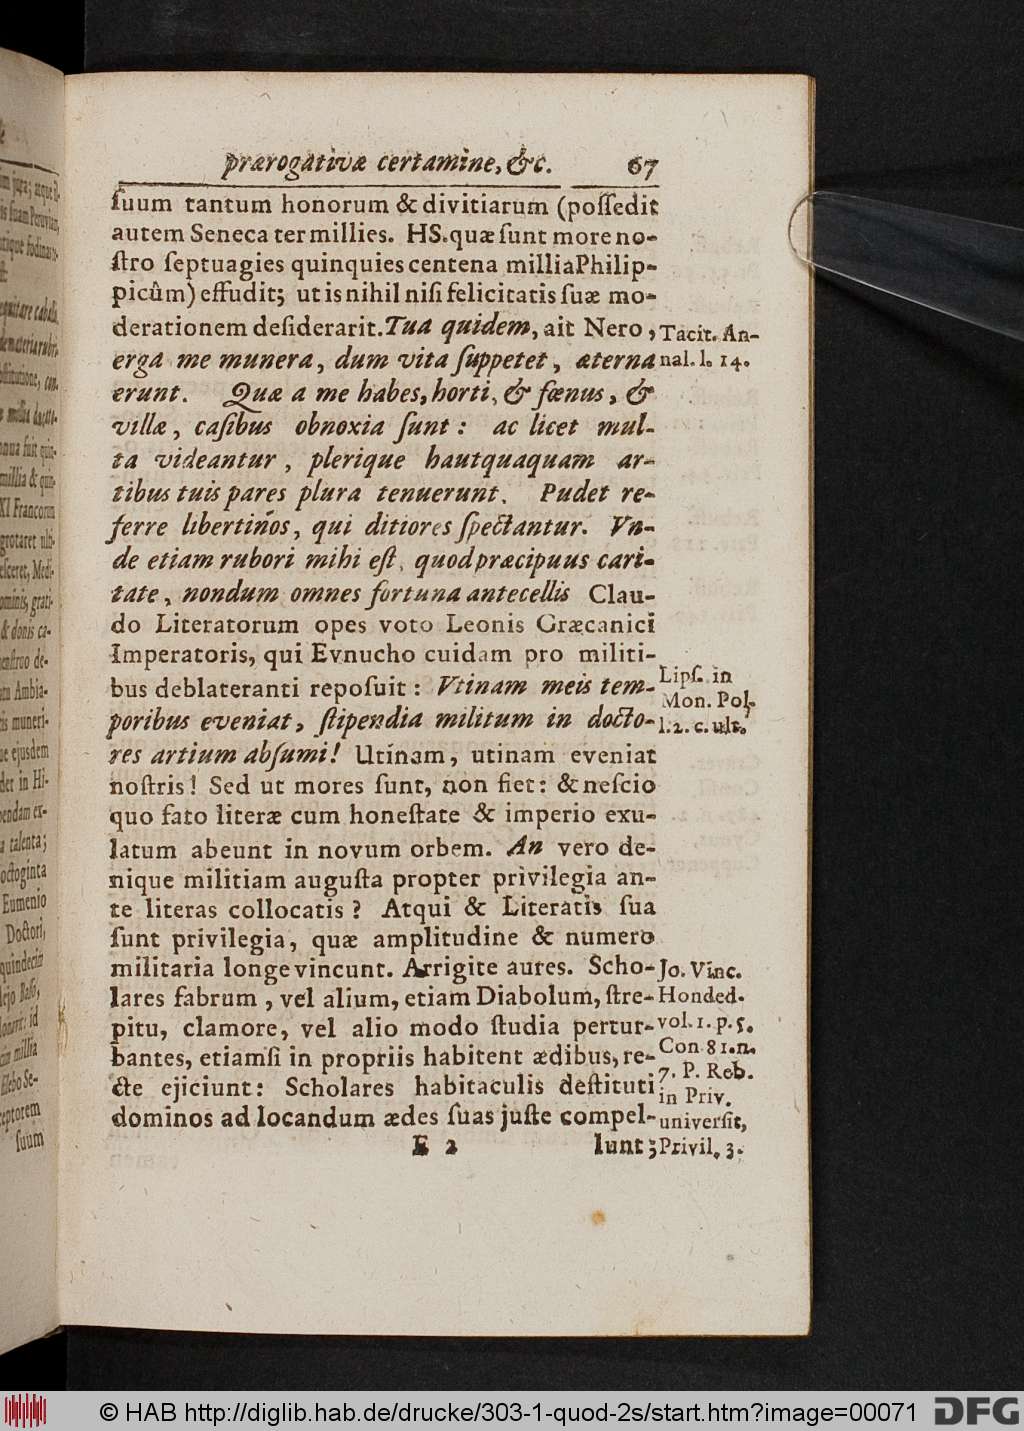 prærogativæ certamine, &c. 67
suum tantum honorum & divitiarum (possedit
autem Seneca ter millies. HS. quæ sunt more no-
stro septuagies quinquies centena millia Philip-
picûm) effudit; ut is nihil nisi felicitatis suæ mo-
derationem desiderarit. Tua quidem, ait Nero,
erga me munera, dum vita suppetet, æterna
erunt. Quæ a me habes, horti, & fœnus, &
villæ, casibus obnoxia sunt: ac licet mul-
ta videantur, plerique hautquaquam ar-
tibus tuis pares plura tenuerunt. Pudet re-
ferre libertinos, qui ditiores spectantur. Vn-
de etiam rubori mihi est, quod præcipuus cari-
tate, nondum omnes fortuna antecellis Clau-
do Literatorum opes voto Leonis Græcanici
Imperatoris, qui Evnucho cuidam pro militi-
bus deblateranti reposuit: Vtinam meis tem-
poribus eveniat, stipendia militum in docto-
res artium absumi! Utinam, utinam eveniat
nostris! Sed ut mores sunt, non fiet: & nescio
quo fato literæ cum honestate & imperio exu-
latum abeunt in novum orbem. An vero de-
nique militiam augusta propter privilegia an-
te literas collocatis? Atqui & Literatis sua
sunt privilegia, quæ amplitudine & numero
militaria longe vincunt. Arrigite aures. Scho-
lares fabrum, vel alium, etiam Diabolum, stre-
pitu, clamore, vel alio modo studia pertur-
bantes, etiamsi in propriis habitent ædibus, re-
cte ejiciunt: Scholares habitaculis destituti
dominos ad locandum ædes suas juste compel-
E 2 lunt;
Tacit. An-
nal. l. 14.
Lips. in
Mon. Pol.
l. 2. c. ult.
Jo. Vinc.
Honded.
vol. 1. p. 5.
Con 81. n.
7. P. Reb.
in Priv.
universit,
Privil. 3.
© HAB http://diglib.hab.de/drucke/303-1-quod-2s/start.htm?image=00071
DFG